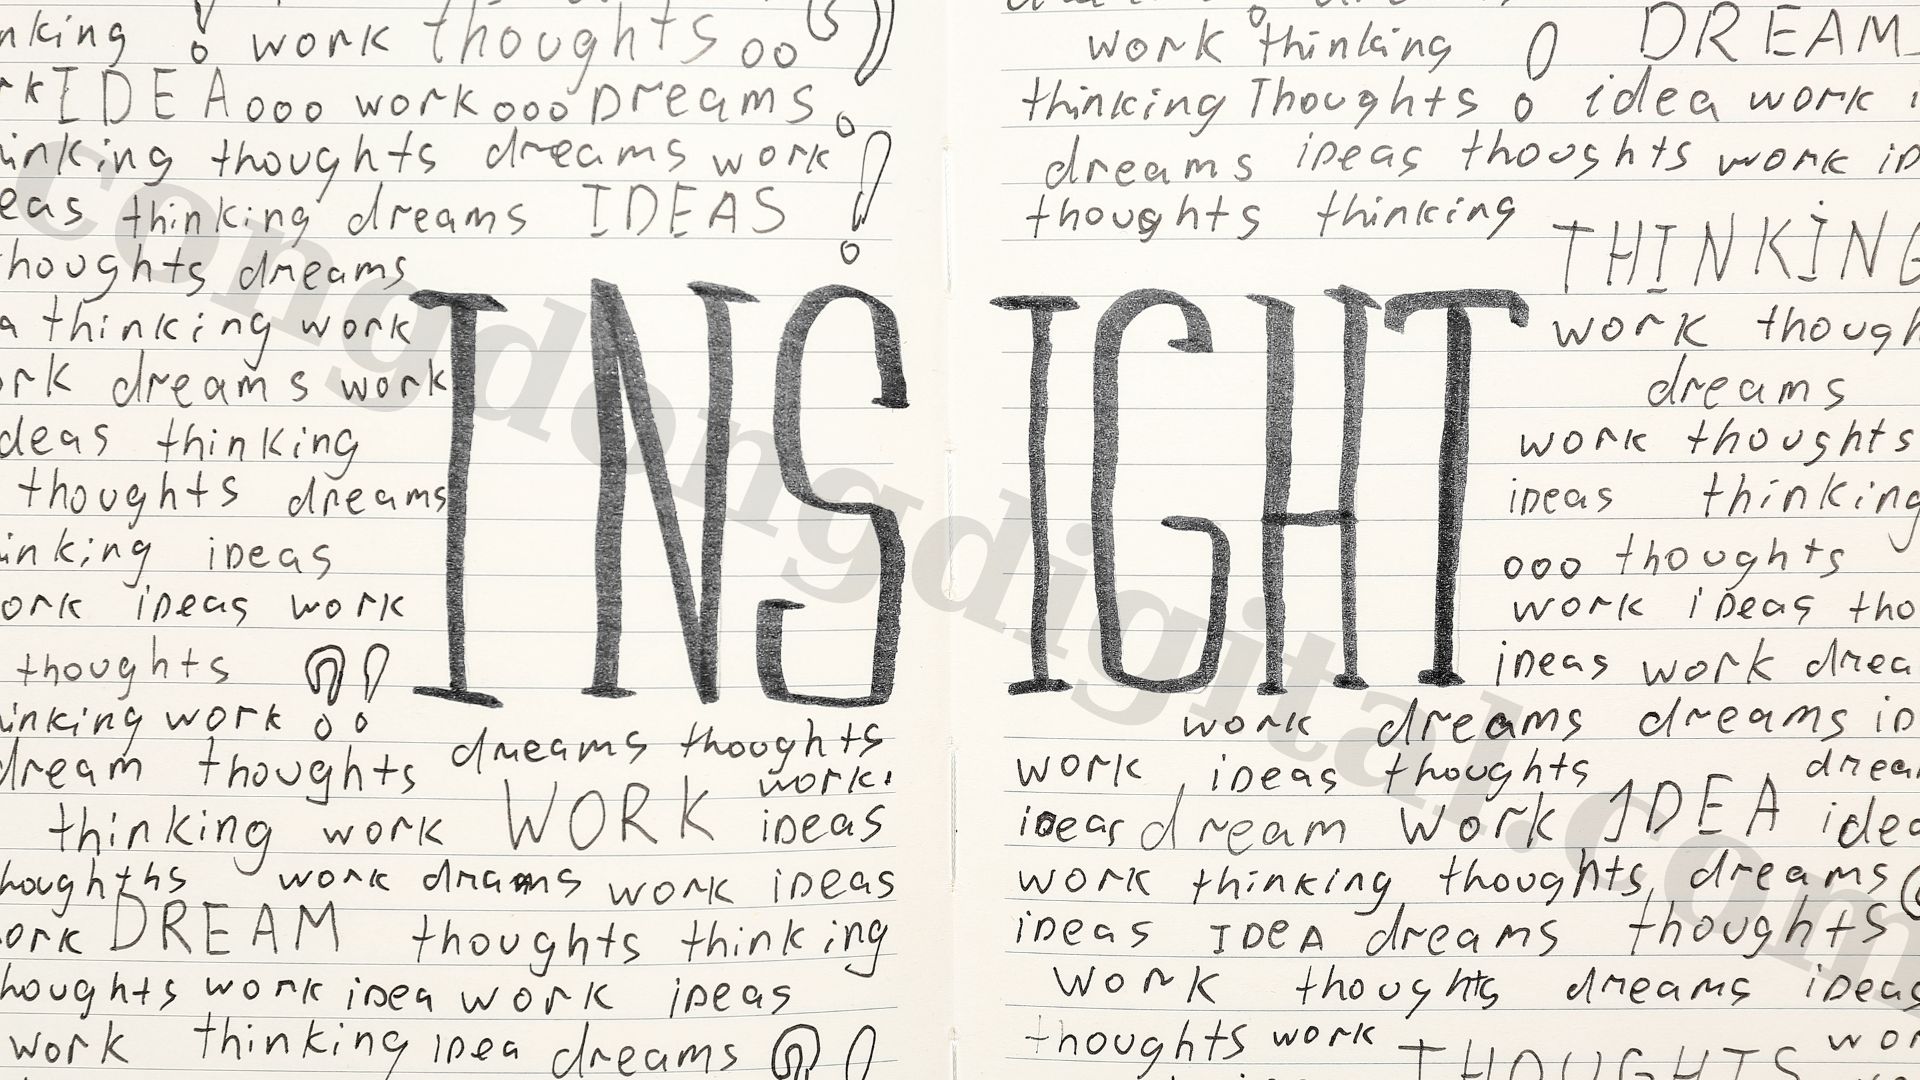 nking ! work thoughts
rk IDEA ooo work ooo Dreams
inking thoughts dreams work !
eas thinking dreams IDEAS
houghts dreams
a thinking work
ork dreams work
deas thinking
thoughts dreams
inking ideas
ork ideas work
thoughts
inking work
dream thoughts dreams thoughts
work.
thinking work WORK ideas
houghths work dreams work ideas
ork DREAM thoughts thinking
houghts work idea work ideas
work thinking idea dreams
INSIGHT
work thinking DREAM
thinking Thoughts o idea work
dreams ideas thoughts work
thoughts thinking
THINKING
work though
dreams
work thoughts
ideas thinking
ooo thoughts
work ideas tho
ideas work drea
work dreams dreams
work ideas thoughts drea
ideas dream Work IDEA idea
work thinking thoughts, dreams
ideas IDeA dreams thoughts
Work thoughts dreams ideas
thoughts work wor
THOUGHTS
congdongdigital.com